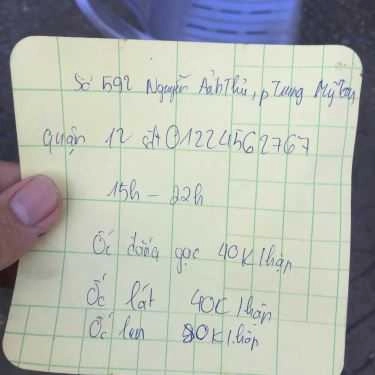 Số 592 Nguyễn Ảnh Thủ, p Trung Mỹ Tây
quận 12 sđt 01224562767
15h - 22h
Ốc đắng gọc 40K/hộp
Ốc lát 40K/hộp
Ốc len 80K/hộp